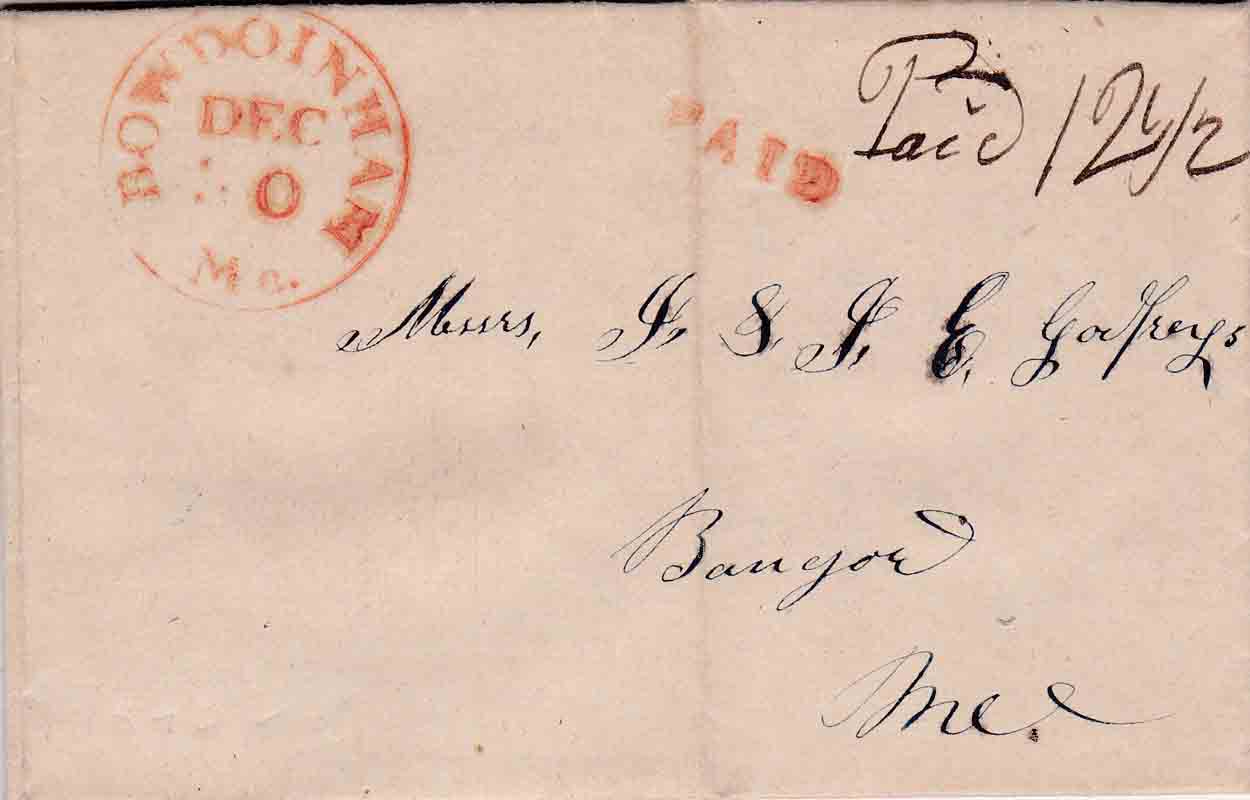 BOWDOINHAM
DEC
0
Me.
PAID
Paid 12 1/2
Messrs, J. & J. E. Godfreys
Bangor
Me.